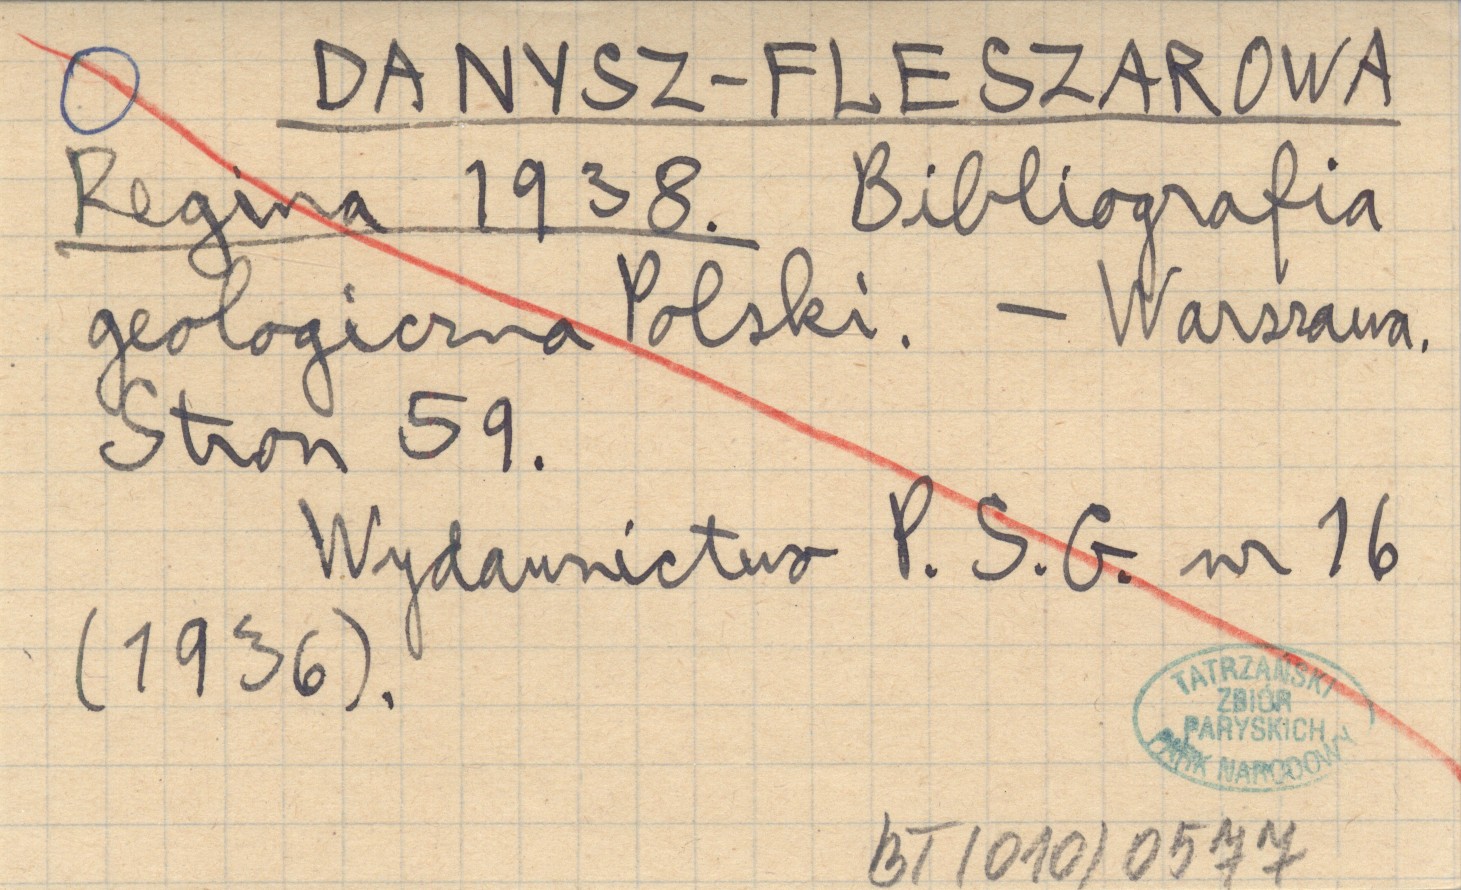 DANYSZ-FLESZAROWA
Regina 1938. Bibliografia
geologiczna Polski. — Warszawa.
Stron 59.
Wydawnictwo P. S. G. nr 16
(1936).
TATRZAŃSKI
ZBIÓR
PARYSKICH
PARK NARODOWY
BT(010)0577